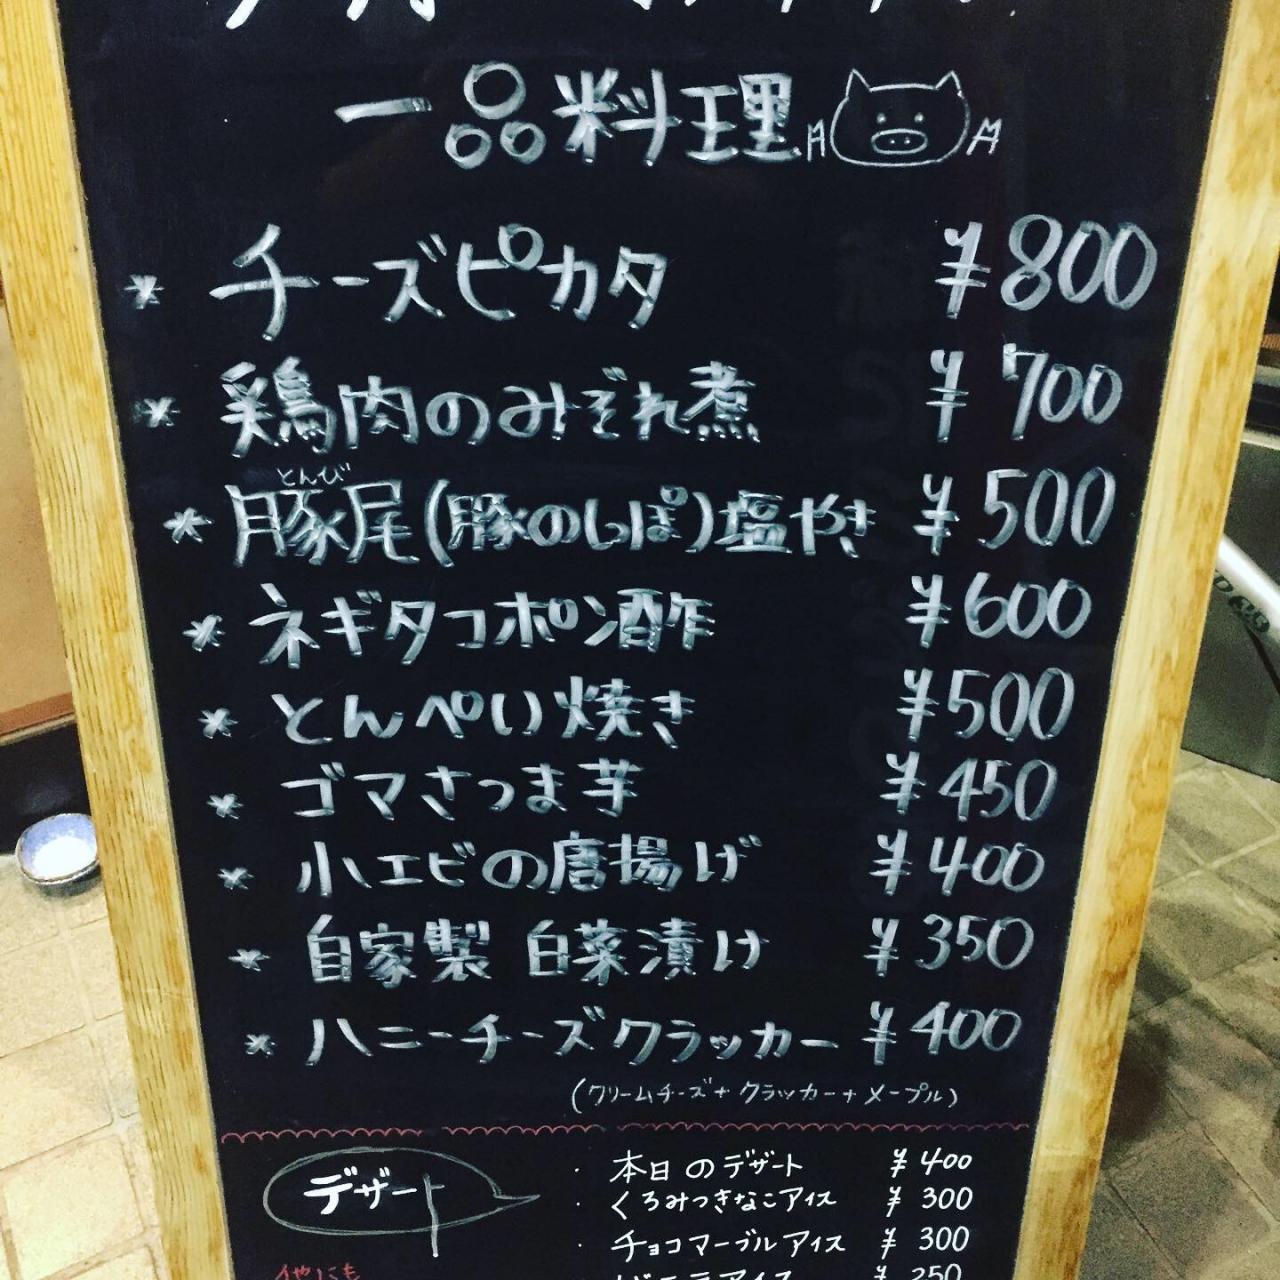 一品料理
* チーズピカタ ¥800
* 鶏肉のみぞれ煮 ¥700
とんび
* 豚尾(豚のしっぽ)塩やき ¥500
* ネギタコポン酢 ¥600
* とんぺい焼き ¥500
* ゴマさつま芋 ¥450
* 小エビの唐揚げ ¥400
* 自家製 白菜漬け ¥350
* ハニーチーズクラッカー ¥400
(クリームチーズ+クラッカー+メープル)
デザート
・本日のデザート ¥400
・くろみつきなこアイス ¥300
・チョコマーブルアイス ¥300
バニラアイス ¥250
他にも